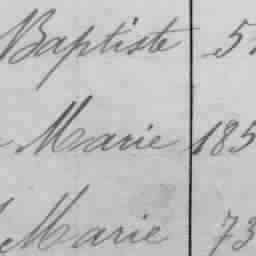 Baptiste 5
Marie 185
Marie 73